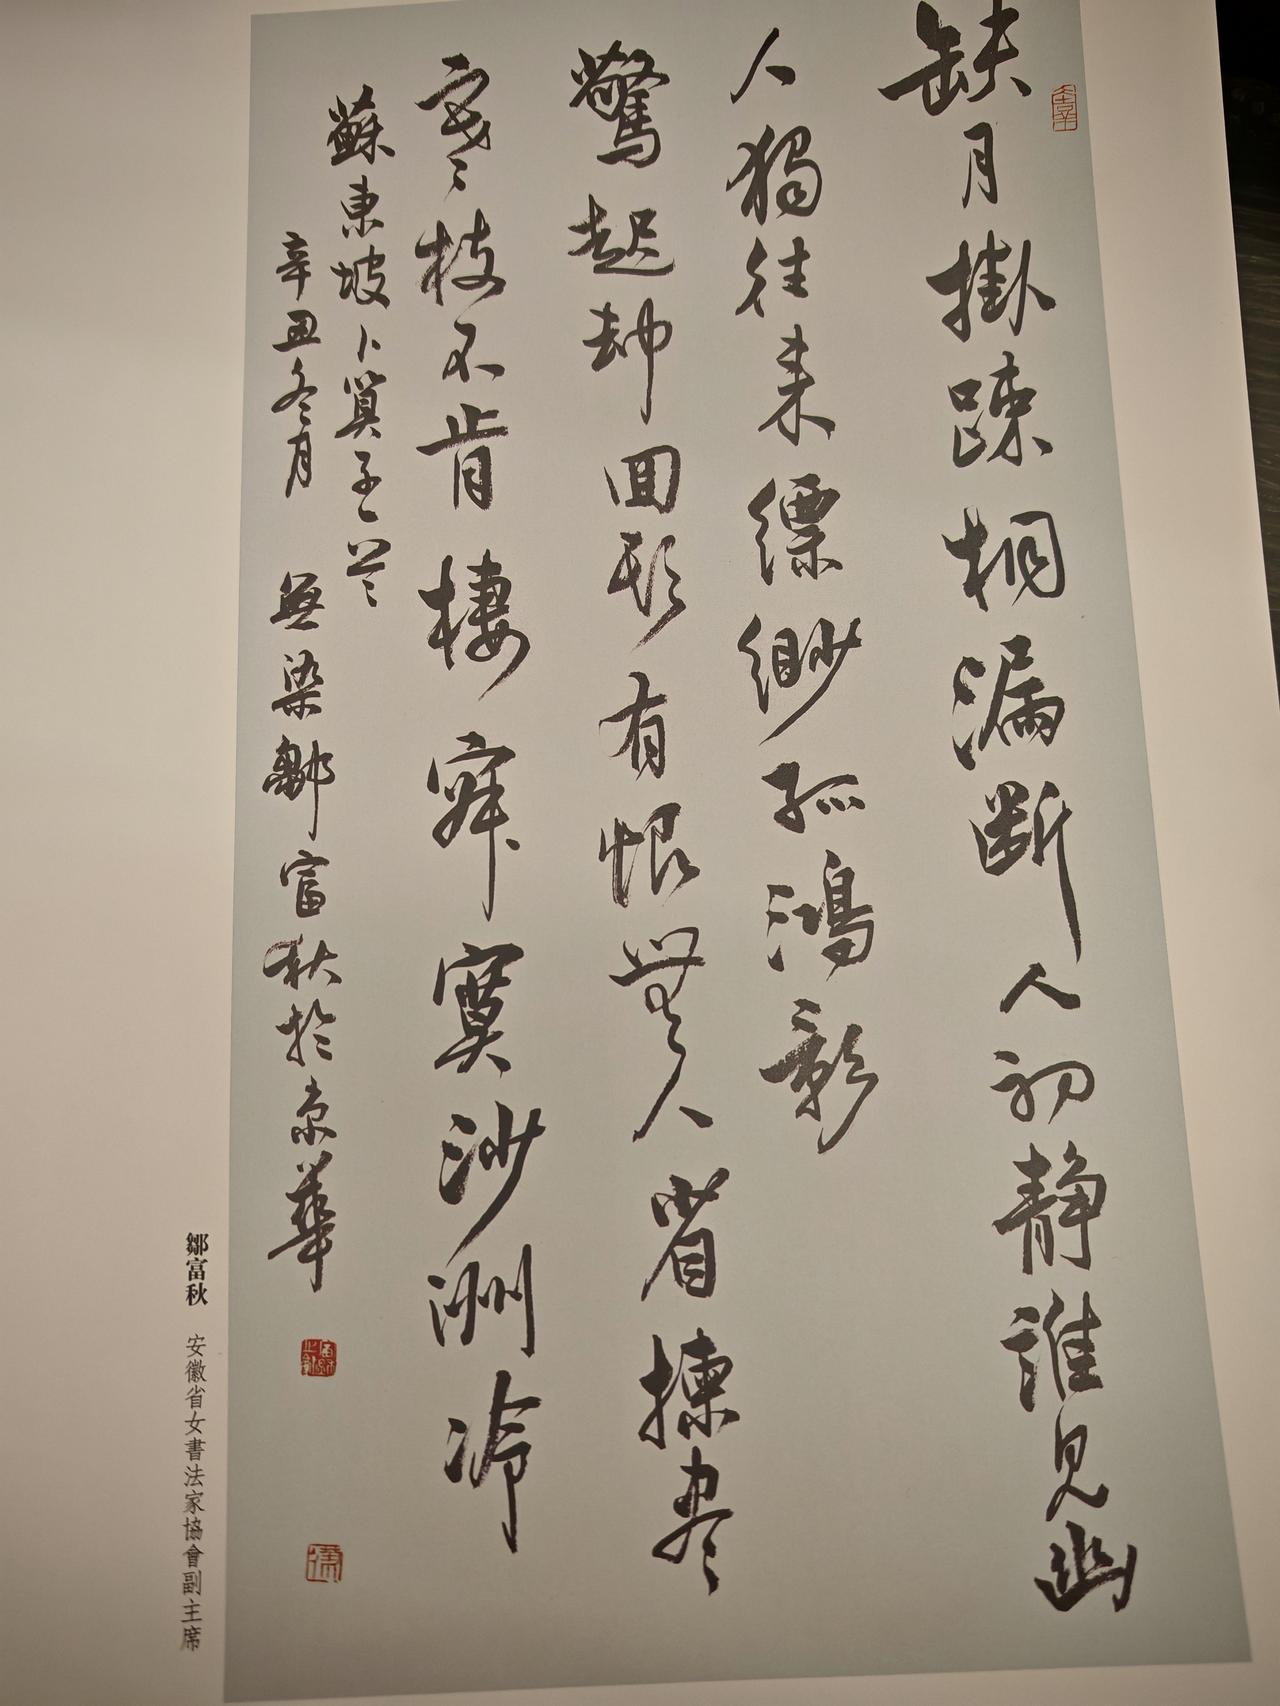 缺月掛踈桐漏斷人初静誰見幽
人獨往来縹緲孤鴻影
驚起却回頭有恨無人省揀尽
寒枝不肯棲寂寞沙洲冷
蘇東坡卜算子一首
辛丑冬月 無染鄒富秋於京華
鄒富秋 安徽省女書法家協會副主席